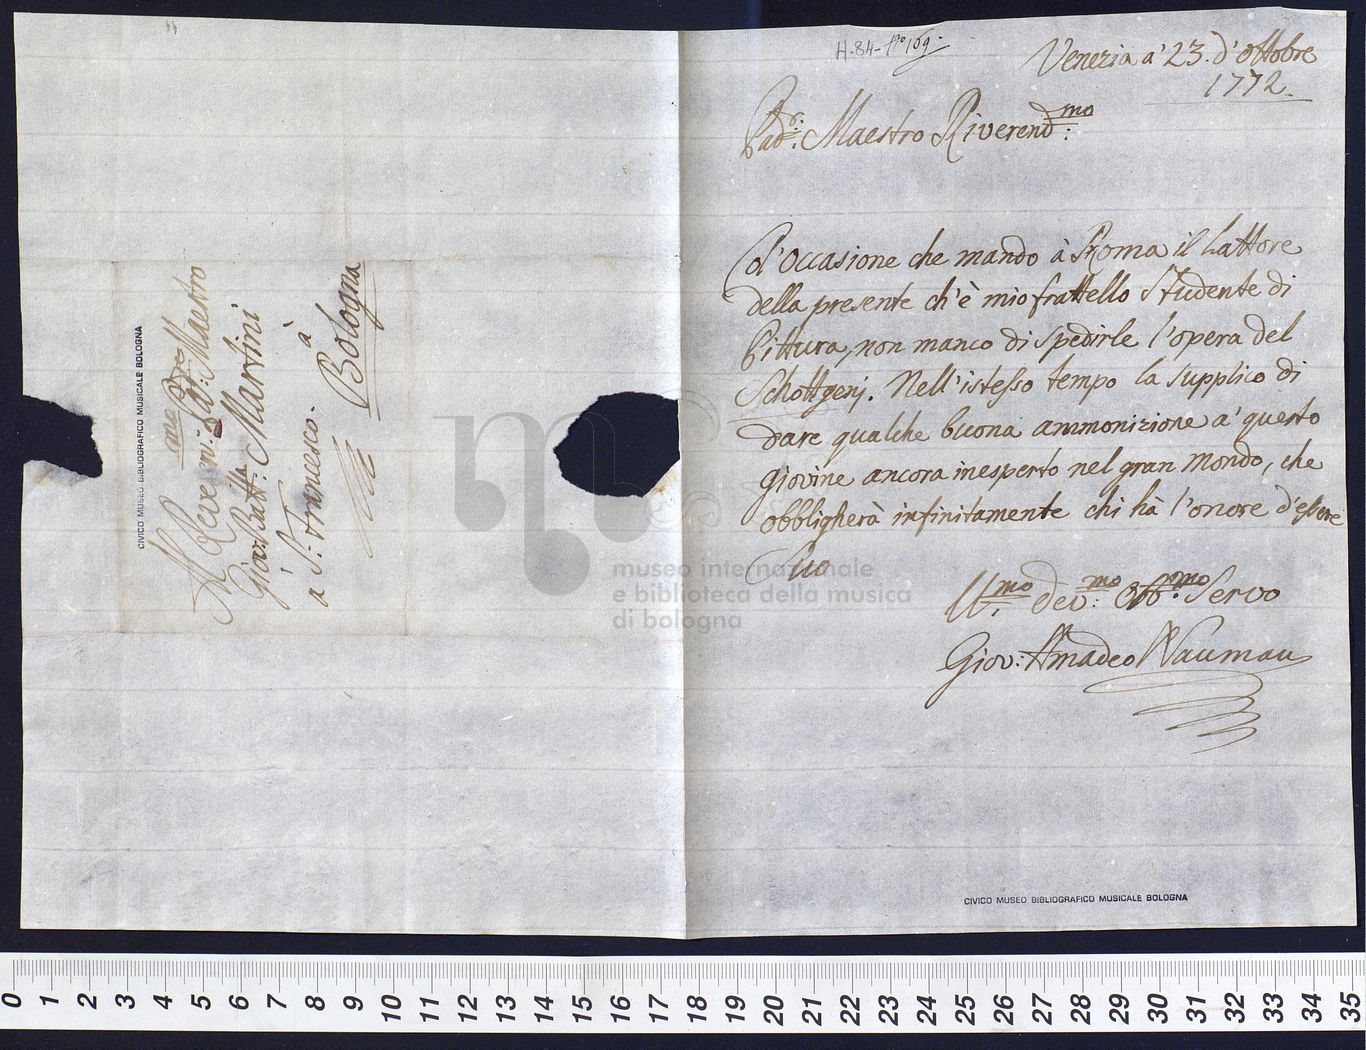 H-84-No 169.
Venezia a' 23. d'Ottobre
1772.
Pad.r: Maestro Riverend:mo
Col'Occasione che mando à Roma il Lattore
della presente ch'è mio frattello Studente di
Pittura, non manco di spedirle l'opera del
Schottgenj. Nell'istesso tempo la supplico di
dare qualche buona ammonizione a' questo
giovine ancora inesperto nel gran Mondo, che
obbligherà infinitamente chi hà l'onore d'essere
Sua
U:mo dev:mo Obb:mo Servo
Giov: Amadeo Nauman
CIVICO MUSEO BIBLIOGRAFICO MUSICALE BOLOGNA
Al Reveren: Pad: Maestro
Giov: Batt:ta Martini
a S: Francesco.
à
Bologna
CIVICO MUSEO BIBLIOGRAFICO MUSICALE BOLOGNA
museo internazionale
e biblioteca della musica
di bologna
0 1 2 3 4 5 6 7 8 9 10 11 12 13 14 15 16 17 18 19 20 21 22 23 24 25 26 27 28 29 30 31 32 33 34 35